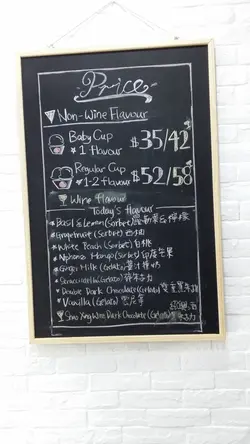 Price
Non-Wine Flavour
Baby Cup
*1 Flavour
$35/42
Regular Cup
*1-2 flavour
$52/58
Wine Flavour
Today's flavour
Basil & Lemon (Sorbet)
Grapefruit (Sorbet) 西柚
White Peach (Sorbet) 白桃
Alphonso Mango (Sorbet) 印度芒果
Ginger Milk (Gelato) 薑汁撞奶
Stracciatella (Gelato)
Double Dark Chocolate (Gelato)
Vanilla (Gelato)
Shao Xing Wine Dark Chocolate (Gelato)